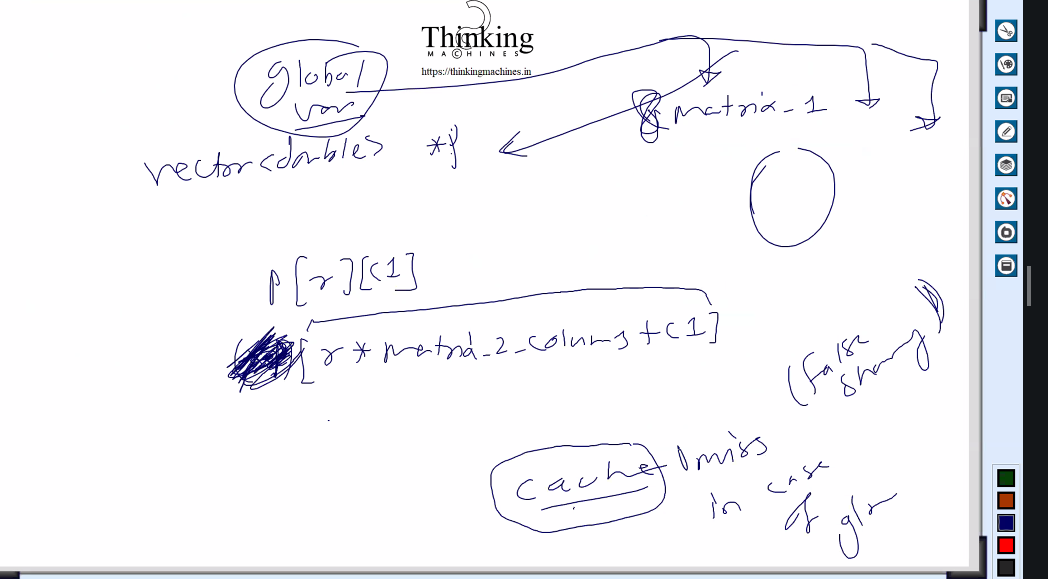 Thinking
MACHINES
https://thinkingmachines.in
global
var
matrix_1
vector<doubles *j
p[r][c1]
[r * matrix_2_columns + c1]
(false
sharing)
cache miss
in case
of